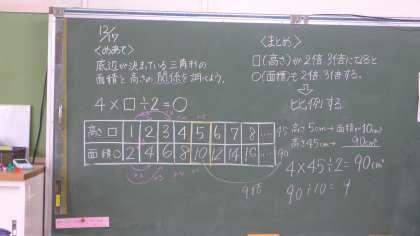 12/17
<めあて>
底辺が決まっている三角形の
面積と高さの関係を調べよう。
4×□÷2=○
高さ□ 1 2 3 4 5 6 7 8 … 45
面積○ 2 4 6 8 10 12 14 16 … 90
9倍
<まとめ>
□(高さ)が2倍3倍になると
○(面積)も2倍3倍する。
⇩
比例する
高さ5cm→面積10cm²
高さ45cm→ 90cm²
4×45÷2=90cm²
90÷10=9